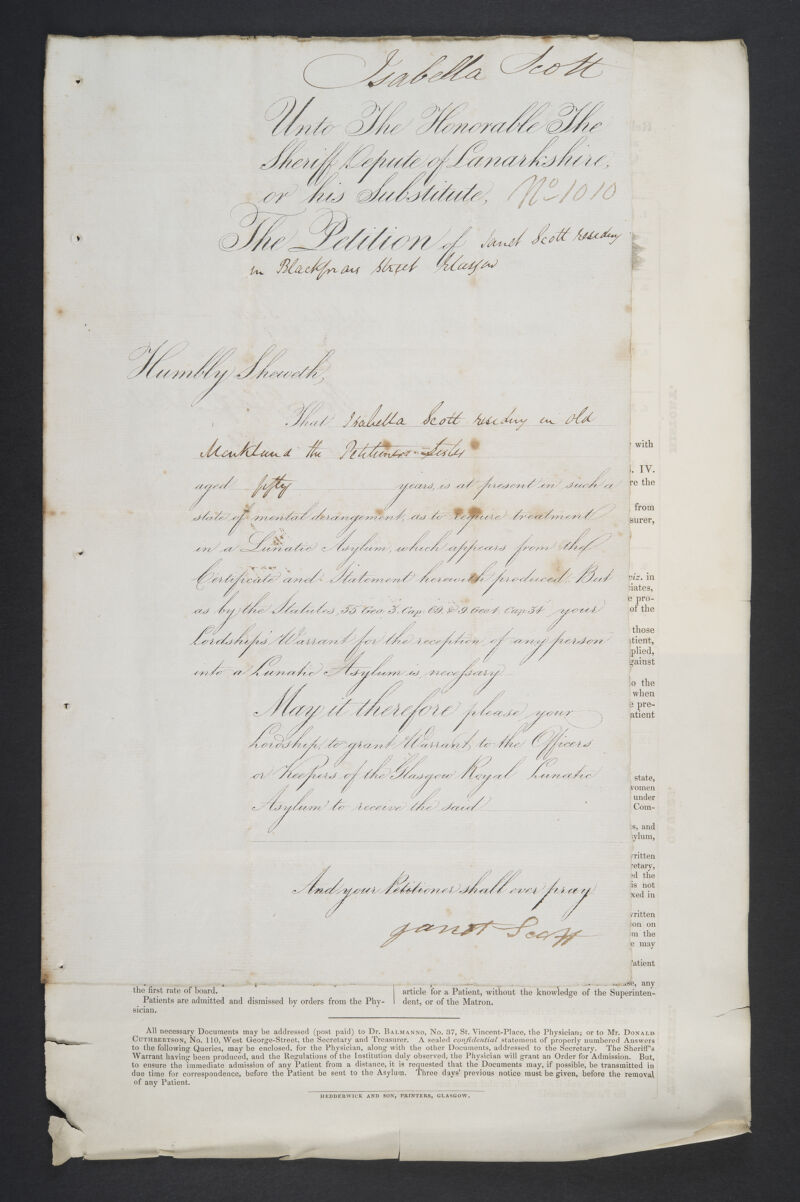 Isabella Scott
Unto The Honorable The
Sheriff Depute of Lanarkshire,
or his Substitute, No 1010
The Petition of Janet Scott residing
in Blackfriars Street Glasgow
Humbly Sheweth,
That Isabella Scott residing in Old
Monkland the Petitioners Sister
aged fifty years, is at present in such a
state of mental derangement, as to require treatment
in a Lunatic Asylum, which appears from the
Certificate and Statement herewith produced. But
as by the Statutes, 55 Geo. 3. Cap. 69 & 9 Geo 4. Cap 34 your
Lordship's Warrant for the reception of any person
into a Lunatic Asylum is necessary
May it therefore please your
Lordship, to grant Warrant, to the Officers
or Keepers of the Glasgow Royal Lunatic
Asylum to receive the said
And your Petitioner shall ever pray
Janet Scott
with
. IV.
re the
from
surer,
viz. in
iates,
e pro-
of the
those
tient,
plied,
gainst
o the
when
e pre-
atient
state,
women
under
Com-
s, and
ylum,
written
retary,
ed the
is not
xed in
written
on on
m the
e may
Patient
se, any
the first rate of board.
Patients are admitted and dismissed by orders from the Phy-
sician.
article for a Patient, without the knowledge of the Superinten-
dent, or of the Matron.
All necessary Documents may be addressed (post paid) to Dr. BALMANNO, No. 37, St. Vincent-Place, the Physician; or to Mr. DONALD
CUTHBERTSON, No. 110, West George-Street, the Secretary and Treasurer. A sealed confidential statement of properly numbered Answers
to the following Queries, may be enclosed, for the Physician, along with the other Documents, addressed to the Secretary. The Sheriff's
Warrant having been produced, and the Regulations of the Institution duly observed, the Physician will grant an Order for Admission. But,
to ensure the immediate admission of any Patient from a distance, it is requested that the Documents may, if possible, be transmitted in
due time for correspondence, before the Patient be sent to the Asylum. Three days' previous notice must be given, before the removal
of any Patient.
HEDDERWICK AND SON, PRINTERS, GLASGOW.